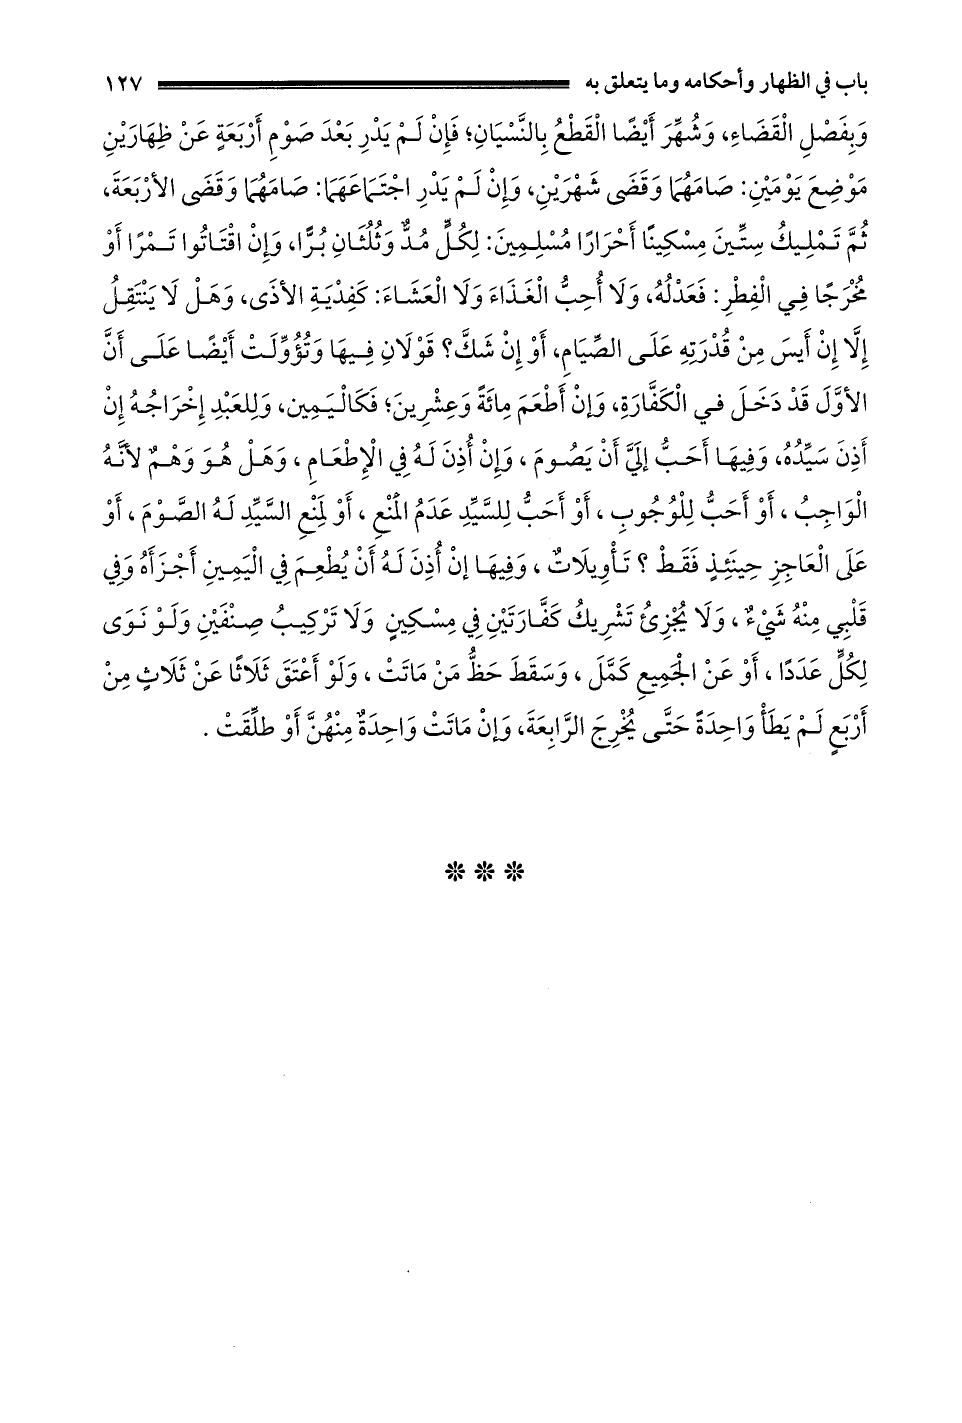 باب في الظهار وأحكامه وما يتعلق به ١٢٧
وَبِفَصْلِ الْقَضَاءِ، وَشُهِّرَ أَيْضًا الْقَطْعُ بِالنِّسْيَانِ؛ فَإِنْ لَمْ يَدْرِ بَعْدَ صَوْمِ أَرْبَعَةٍ عَنْ ظِهَارَيْنِ
مَوْضِعَ يَوْمَيْنِ: صَامَهُمَا وَقَضَى شَهْرَيْنِ، وَإِنْ لَمْ يَدْرِ اجْتِمَاعَهَمَا: صَامَهُمَا وَقَضَى الأَرْبَعَةَ،
ثُمَّ تَمْلِيكُ سِتِّينَ مِسْكِينًا أَحْرَارًا مُسْلِمِينَ: لِكُلٍّ مُدٌّ وَثُلُثَانِ بُرًّا، وَإِنْ اقْتَاتُوا تَمْرًا أَوْ
مُخْرَجًا فِي الْفِطْرِ: فَعَدْلُهُ، وَلَا أُحِبُّ الْغَذَاءَ وَلَا الْعَشَاءَ: كَفِدْيَةِ الأَذَى، وَهَلْ لَا يَنْتَقِلُ
إِلَّا إِنْ أَيِسَ مِنْ قُدْرَتِهِ عَلَى الصِّيَامِ، أَوْ إِنْ شَكَّ؟ قَوْلَانِ فِيهَا وَتُؤُوِّلَتْ أَيْضًا عَلَى أَنَّ
الأَوَّلَ قَدْ دَخَلَ في الْكَفَّارَةِ، وَإِنْ أَطْعَمَ مِائَةً وَعِشْرِينَ؛ فَكَالْيَمِينِ، وَلِلعَبْدِ إِخْرَاجُهُ إِنْ
أَذِنَ سَيِّدُهُ، وَفِيهَا أَحَبُّ إِلَيَّ أَنْ يَصُومَ ، وَإِنْ أُذِنَ لَهُ فِي الْإِطْعَامِ ، وَهَلْ هُوَ وَهْمٌ لأَنَّهُ
الْوَاجِبُ ، أَوْ أَحَبُّ لِلْوُجُوبِ ، أَوْ أَحَبُّ لِلسَّيِّدِ عَدَمُ الْمَنْعِ ، أَوْ لِمَنْعِ السَّيِّدِ لَهُ الصَّوْمَ ، أَوْ
عَلَى الْعَاجِزِ حِينَئِذٍ فَقَطْ ؟ تَأْوِيلَاتٌ ، وَفِيهَا إِنْ أُذِنَ لَهُ أَنْ يُطْعِمَ فِي الْيَمِينِ أَجْزَأَهُ وَفِي
قَلْبِي مِنْهُ شَيْءٌ ، وَلَا يُجْزِئُ تَشْرِيكُ كَفَّارَتَيْنِ فِي مِسْكِينٍ وَلَا تَرْكِيبُ صِنْفَيْنِ وَلَوْ نَوَى
لِكُلٍّ عَدَدًا ، أَوْ عَنْ الْجَمِيعِ كَمَّلَ ، وَسَقَطَ حَظُّ مَنْ مَاتَتْ ، وَلَوْ أَعْتَقَ ثَلَاثًا عَنْ ثَلَاثٍ مِنْ
أَرْبَعٍ لَمْ يَطَأْ وَاحِدَةً حَتَّى يُخْرِجَ الرَّابِعَةَ، وَإِنْ مَاتَتْ وَاحِدَةٌ مِنْهُنَّ أَوْ طلِّقَتْ .
* * *